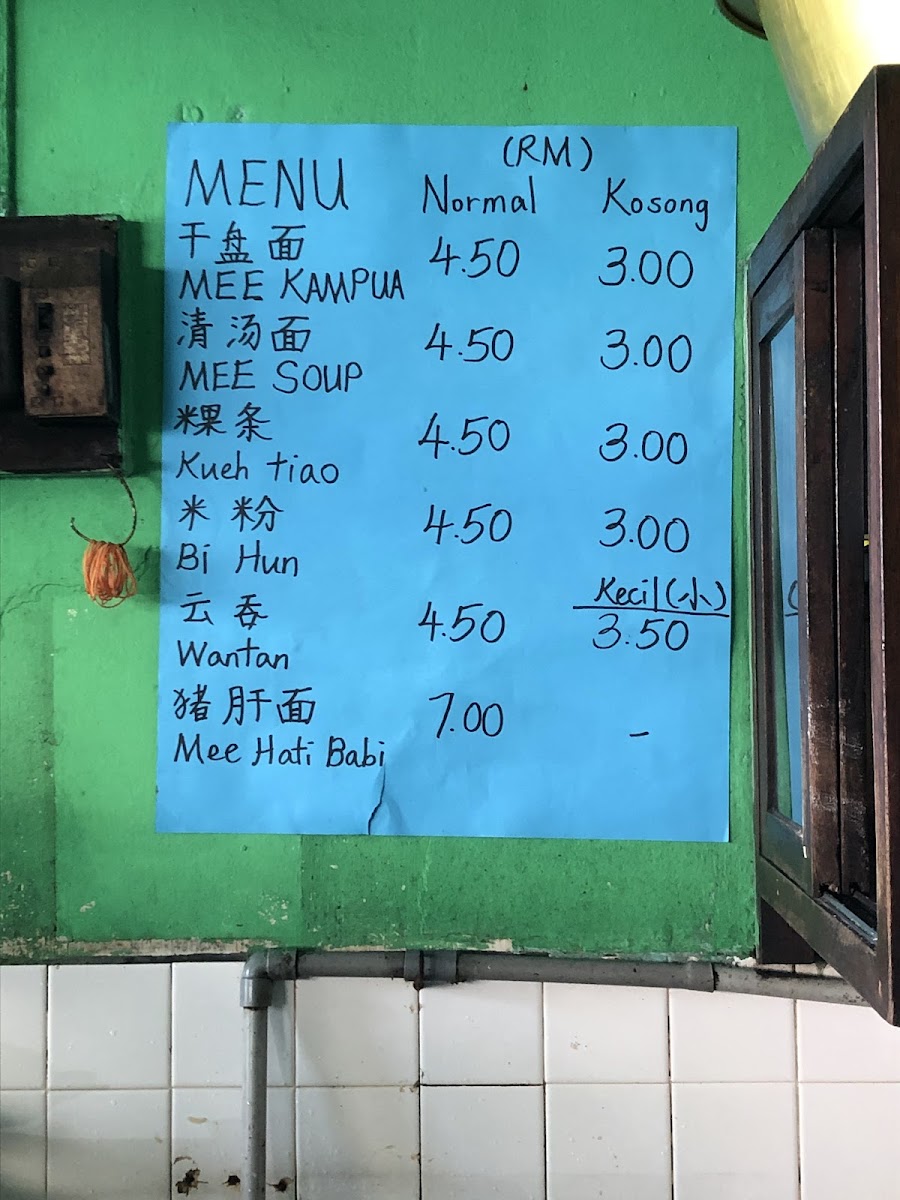 (RM)
MENU Normal Kosong
干盘面
MEE KAMPUA 4.50 3.00
清汤面
MEE SOUP 4.50 3.00
粿条
Kueh tiao 4.50 3.00
米粉
Bi Hun 4.50 3.00
Kecil (小)
云吞
Wantan 4.50 3.50
猪肝面
Mee Hati Babi 7.00 -